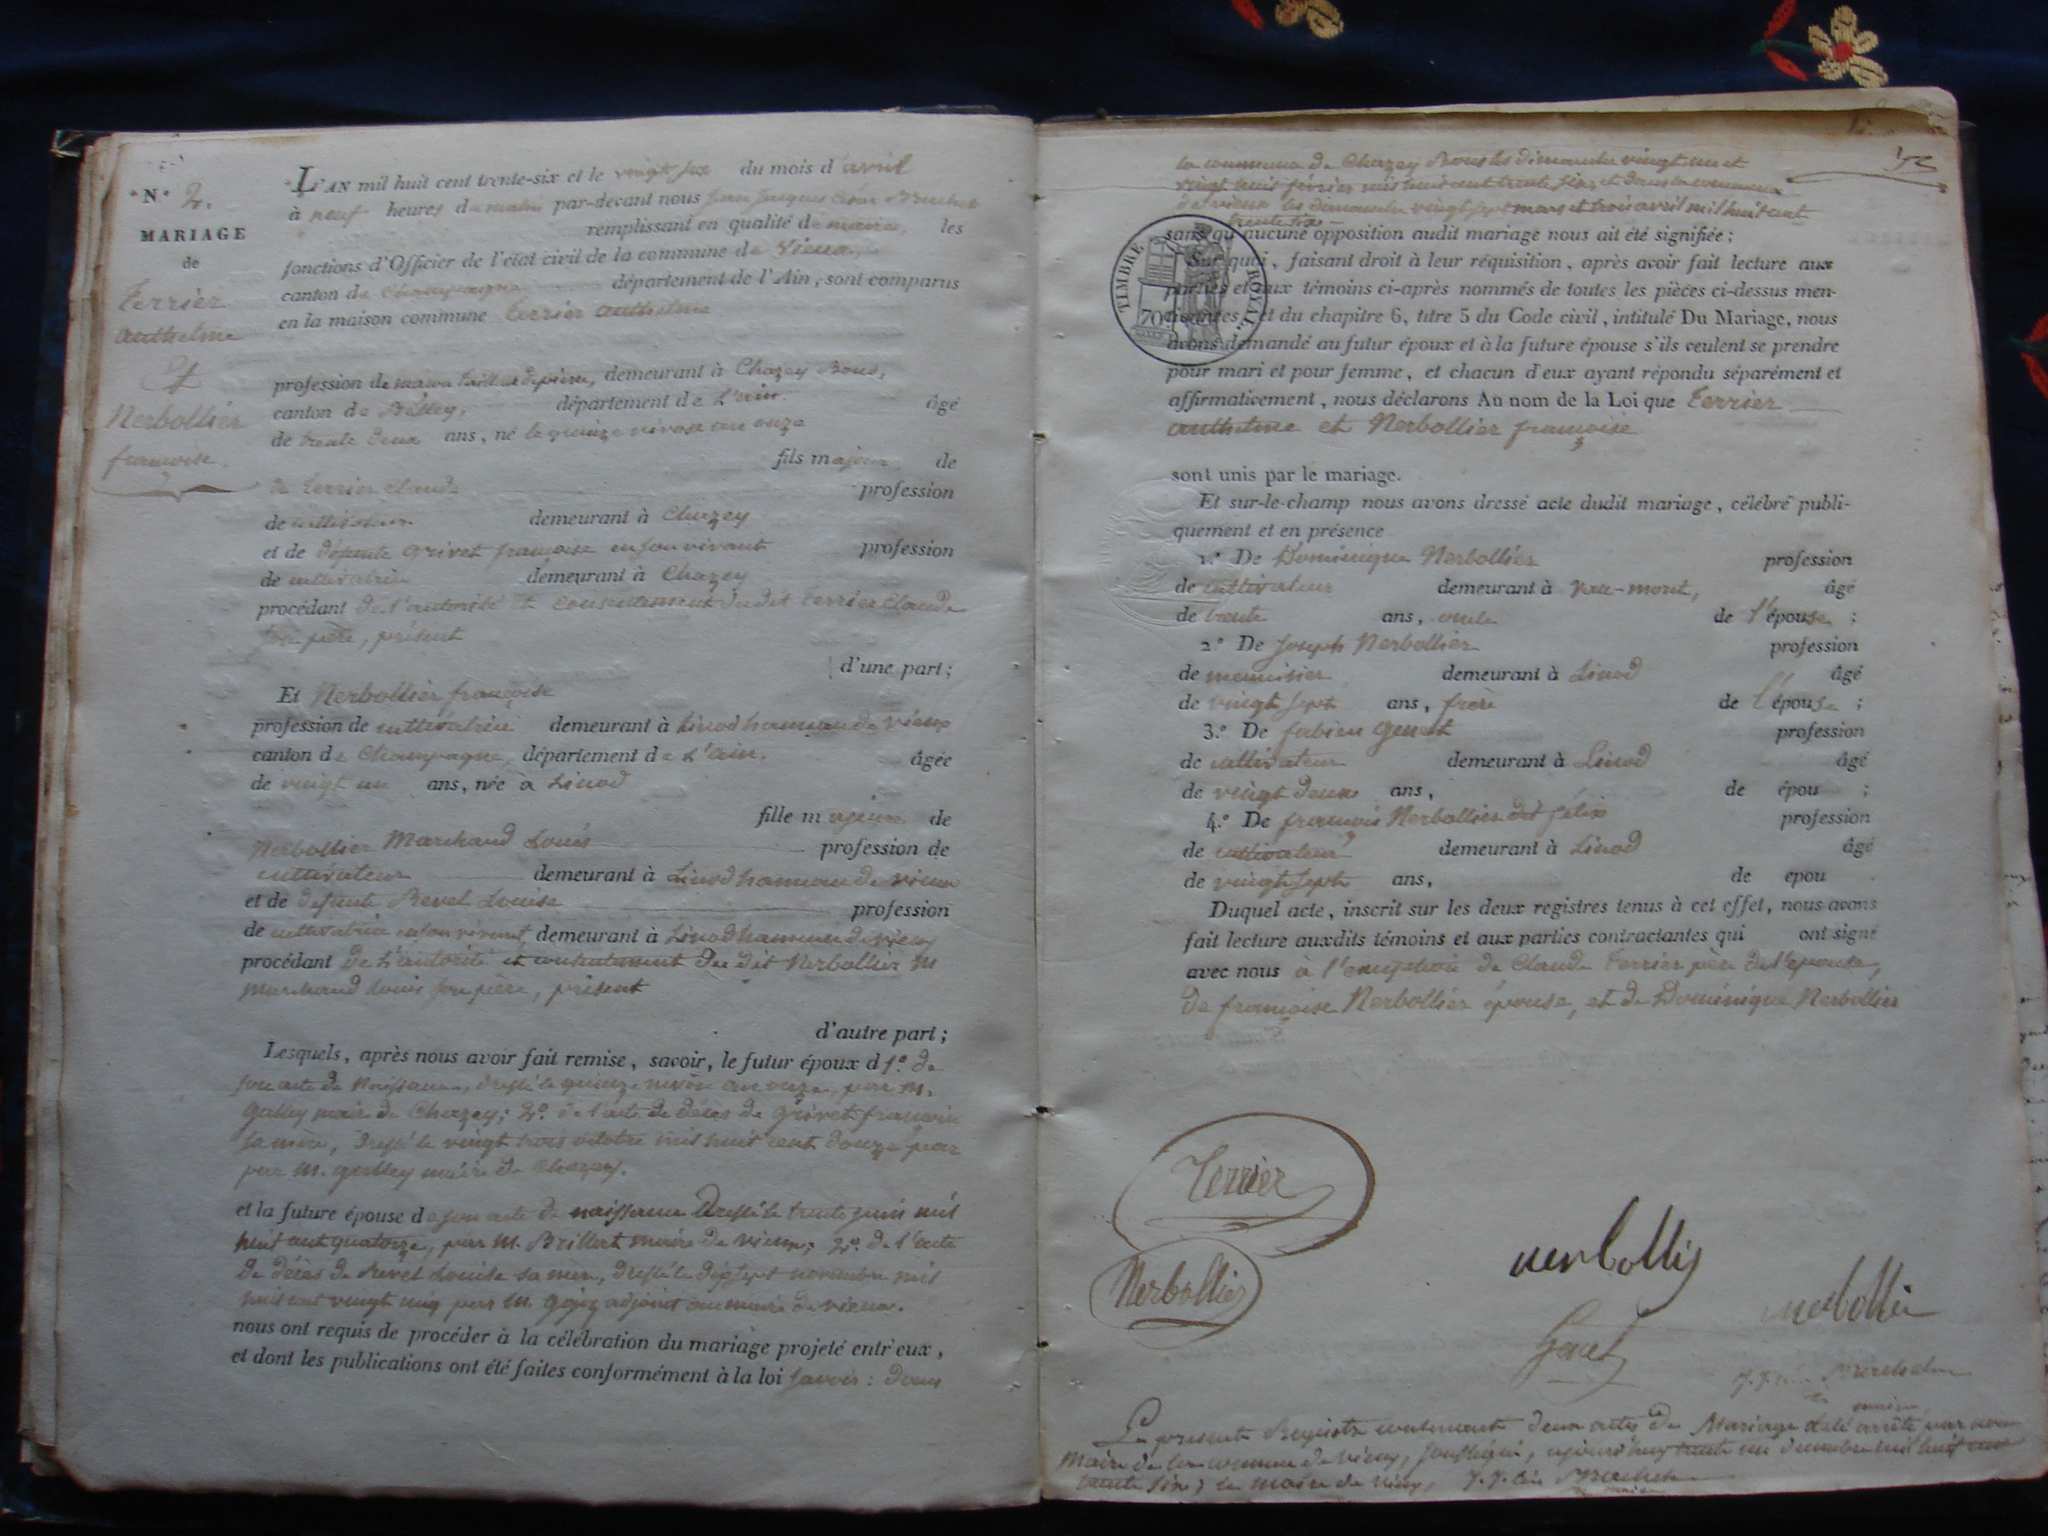 N° 2.
MARIAGE
de
Terrier
anthelme
Et
Nerbollier
françoise
L'AN mil huit cent trente-six et le vingt six du mois d'avril
à neuf heures du matin par-devant nous Jean Jacques
remplissant en qualité de maire, les
fonctions d'Officier de l'état civil de la commune de Vieux,
canton de Champagne département de l'Ain, sont comparus
en la maison commune Terrier anthelme
profession de tailleur de pierre, demeurant à Chazey Bons,
canton de Belley, département de L'ain. âgé
de trente deux ans, né le quinze nivose an onze
fils majeur de
de Terrier Claude profession
de cultivateur demeurant à Chazey
et de défunte Grivet françoise en son vivant profession
de cultivatrice demeurant à Chazey
procédant de l'autorité et consentement du dit Terrier Claude
son père, présent
d'une part;
Et Nerbollier françoise
profession de cultivatrice demeurant à Linod hameau de vieux
canton de Champagne, département de L'ain. âgée
de vingt un ans, née à Linod
fille majeure de
Nerbollier Marchand Louis profession de
cultivateur demeurant à Linod hameau de vieux
et de defunte Revel Louise profession
de cultivatrice en son vivant, demeurant à Linod hameau de vieux
procédant de l'autorité et consentement du dit Nerbollier
Marchand Louis son père, présent
d'autre part;
Lesquels, après nous avoir fait remise, savoir, le futur époux d 1° de
son acte de Naissance, dressé le quinze nivôse an onze, par M.
mair de Chazey; 2° de l'acte de décès de Grivet françoise
sa mère, dressé le vingt trois octobre mil huit cent douze par
par M. maire de Chazey.
et la future épouse de son acte de naissance dressé le trente juin mil
huit cent quatorze, par M. Brillat maire de vieux; 2° de l'acte
de décès de Revel Louise sa mère, dressé le dix sept novembre mil
huit cent vingt cinq par M. adjoint au maire de vieux.
nous ont requis de procéder à la célébration du mariage projeté entr'eux,
et dont les publications ont été faites conformément à la loi savoir: dans
la commune de Chazey Bons les dimanches vingt un et
vingt huit février mil huit cent trente six, et dans la commune
de vieux les dimanches vingt sept mars et trois avril mil huit cent
trente six
sans qu'aucune opposition audit mariage nous ait été signifiée;
TIMBRE ROYAL
70
Sur quoi, faisant droit à leur réquisition, après avoir fait lecture aux
parties et aux témoins ci-après nommés de toutes les pièces ci-dessus men-
tionnées, et du chapitre 6, titre 5 du Code civil, intitulé Du Mariage, nous
avons demandé au futur époux et à la future épouse s'ils veulent se prendre
pour mari et pour femme, et chacun d'eux ayant répondu séparément et
affirmativement, nous déclarons Au nom de la Loi que Terrier
anthelme et Nerbollier françoise
sont unis par le mariage.
Et sur-le-champ nous avons dressé acte dudit mariage, célébré publi-
quement et en présence
1.° De Dominique Nerbollier profession
de cultivateur demeurant à âgé
de trente ans, oncle de l'épouse;
2.° De Joseph Nerbollier profession
de menuisier demeurant à Linod âgé
de vingt sept ans, frère de l'épouse;
3.° De fabien Genet profession
de cultivateur demeurant à Linod âgé
de vingt deux ans, de épou ;
4.° De françois Nerbollier dit félix profession
de cultivateur demeurant à Linod âgé
de vingt sept ans, de epou
Duquel acte, inscrit sur les deux registres tenus à cet effet, nous avons
fait lecture auxdits témoins et aux parties contractantes qui ont signé
avec nous à l'exception de Claude Terrier père de l'epouse,
de françoise Nerbollier épouse, et de Dominique Nerbollier
Terrier
Nerbollier
nerbollier
Genet
Le présent Registre contenant deux actes de Mariage a été arrêté par nous
Maire de la commune de vieux, soussigné, aujourd'huy trente un décembre mil huit cent
trente six; le maire de vieux,